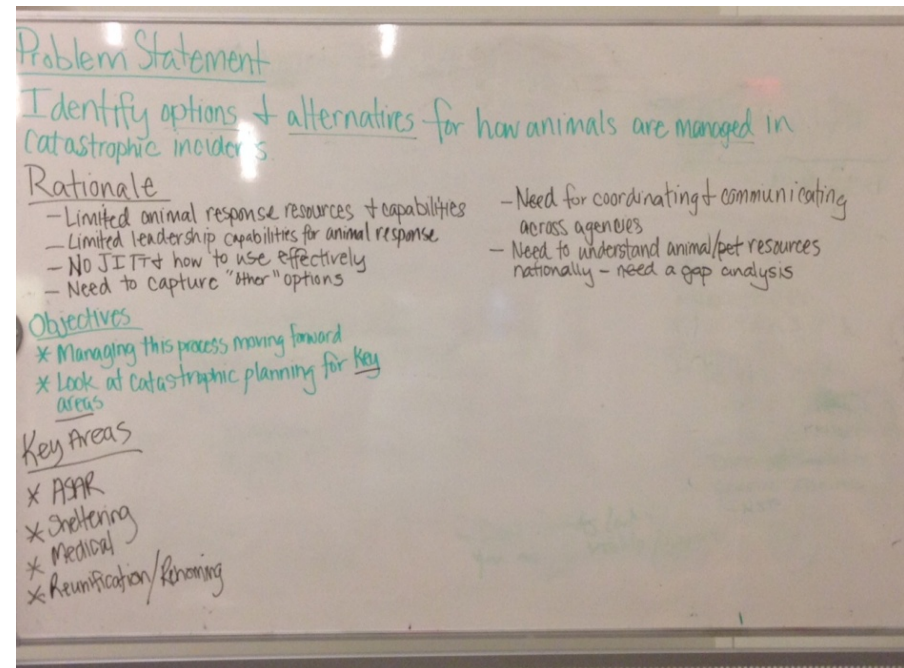 Problem Statement
Identify options + alternatives for how animals are managed in
catastrophic incidents
Rationale
- Limited animal response resources + capabilities
- Limited leadership capabilities for animal response
- NO JITT + how to use effectively
- Need to capture "other" options
- Need for coordinating + communicating
across agencies
- Need to understand animal/pet resources
nationally - need a gap analysis
Objectives
* Managing this process moving forward
* Look at catastrophic planning for Key
areas
Key Areas
* ASAR
* Sheltering
* Medical
* Reunification/Rehoming